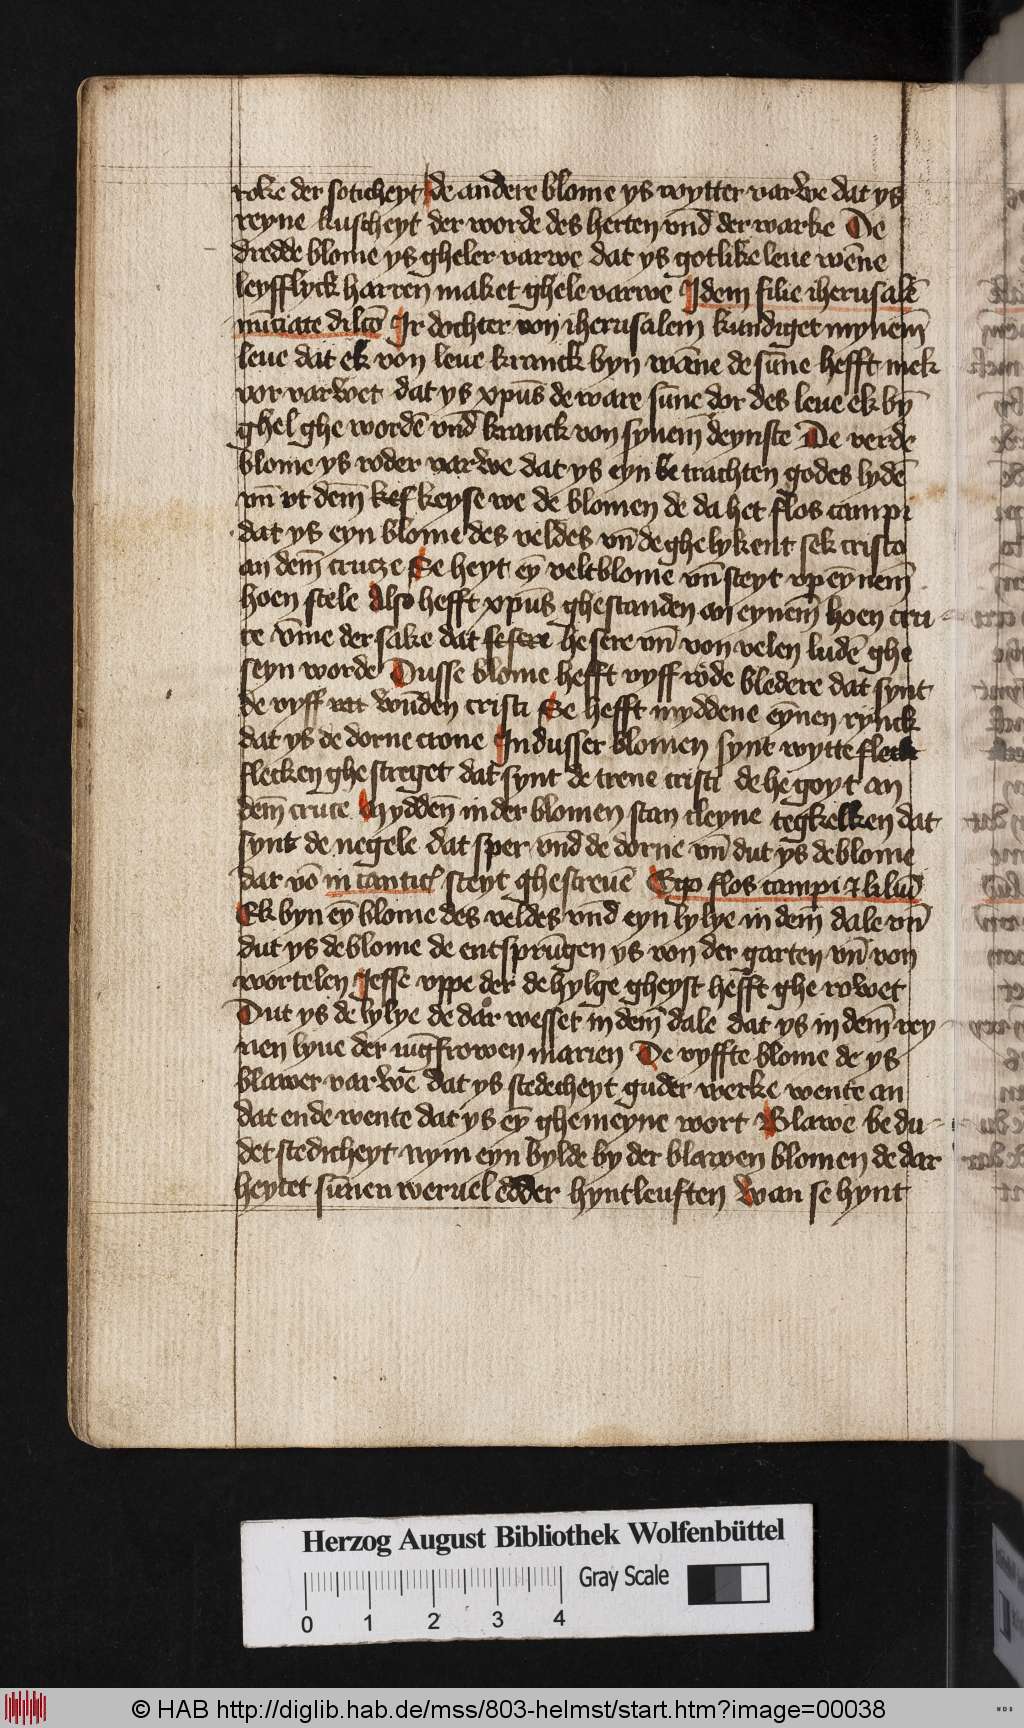 roke der soticheyt de andere blome ys wytter varwe dat ys
reyne kuscheyt der worde des herten vnd der warke De
dredde blome ys gheler varwe dat ys gotlike leue wēne
leyfflyck harren maket ghele varwe Idem filie iherusalē
nūciate dilcō Ir dochter von iherusalem kundiget mynem̄
leue dat ek von leue kranck byn wāne de sūne hefft mek
vor varwet dat ys xpūs de ware sūne dor des leue ek bȳ
ghel ghe wordē vnd kranck von synem̄ deynste De verde
blome ys roder varwe dat ys eyn be trachten godes lydē
vn̄ vt dem̄ kef keyse we de blomen de da het flos campi
dat ys eyn blome des veldes vn̄ de ghelykent sek cristo
an dem̄ crucze Se heyt eȳ veltblome vn̄ steyt vp eynem̄
hoen stele Also hefft xpūs ghestanden an eynem̄ hoen cru
ce v̄me der sake dat he sere vn̄ von velen ludē ghe
seyn worde Dusse blome hefft vyff rode bledere dat synt
de vyff wūden cristi Se hefft myddene eynen rynck
dat ys de dorne crone In dusser blomen synt wytte fleck
flecken ghe streget dat synt de trene cristi de he goyt an
dem̄ cruce Myddēn in der blomen stan cleyne tegkelken dat
synt de negele dat sper vnd de dorne vn̄ dut ys de blome
dar vō in cantic steyt ghescreuē Ego flos campi
Ek byn eȳ blome des veldes vnd eyn lylye in dem̄ dale vn̄
dut ys de blome de entsprūgen ys von der garten vn̄ von
wortelen Jesse vppe der de hylge gheyst hefft ghe rowet
Dut ys de lylye de dar wesset in dem̄ dale dat ys in dem̄ rey
nen lyue der iūgfrowen marien De vyffte blome de ys
blawer varwe dat ys stedecheyt guder werke wente an
dat ende wente dat ys eȳ ghemeyne wort Blawe be du
det stedicheyt nym eyn bylde by der blawen blomen de dar
heytet sūnen weruel edder hyntleuften Wan se hynt
Herzog August Bibliothek Wolfenbüttel
Gray Scale
0 1 2 3 4
© HAB http://diglib.hab.de/mss/803-helmst/start.htm?image=00038